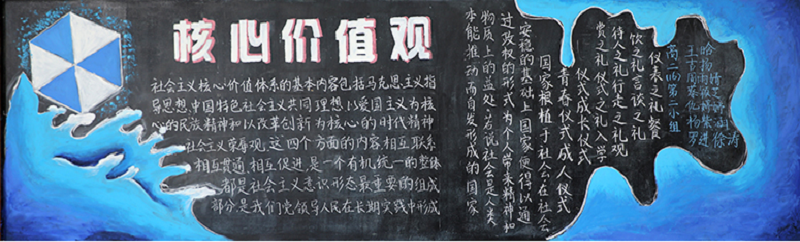 核心价值观
社会主义核心价值体系的基本内容包括马克思主义指
导思想中国特色社会主义共同理想以爱国主义为核
心的民族精神和以改革创新为核心的时代精神
社会主义荣辱观,这四个方面的内容相互联系
相互贯通,相互促进,是一个有机统一的整体
都是社会主义意识形态最重要的组成
部分,是我们党领导人民在长期实践中形成
仪表之礼餐
饮之礼言谈之礼
待人之礼行走之礼观
赏之礼仪式之礼入学
仪式成长仪式
青春仪式成人仪式
国家根植于社会会在社会
安稳的基础上国家便得以通
过政权的形式为个人带来精神和
物质上的益处若说社会是人类
本能推动而自发形成的国家
第二小组